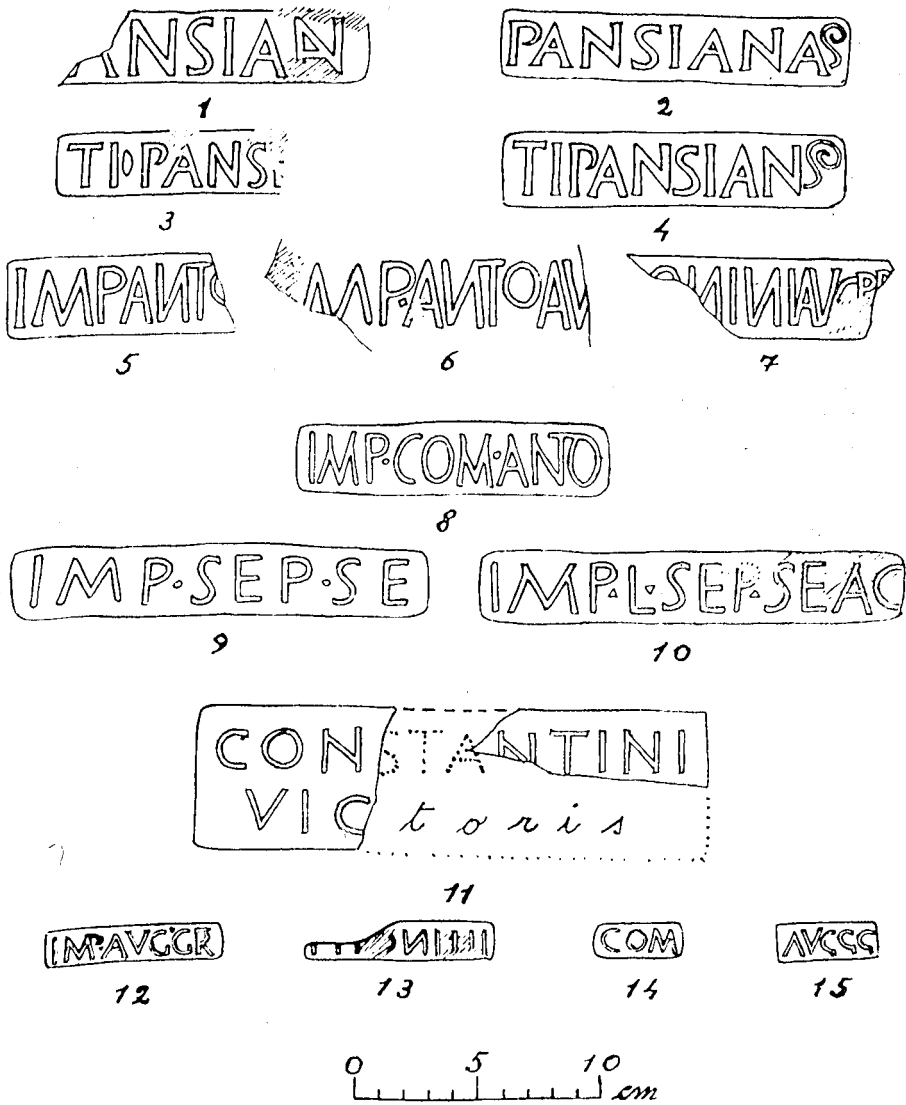 ANSIAN
1
PANSIANAS
2
TI·PANS
3
TIPANSIANS
4
IMPANTO
5
IMP·ANTOAV
6
ONINIAV PP
7
IMP·COM·ANTO
8
IMP·SEP·SE
9
IMP·L·SEP·SEAC
10
CONSTANTINI
VICtoris
11
IMP·AVGGR
12
COM
14
AVGGG
15
13
0 5 10 cm